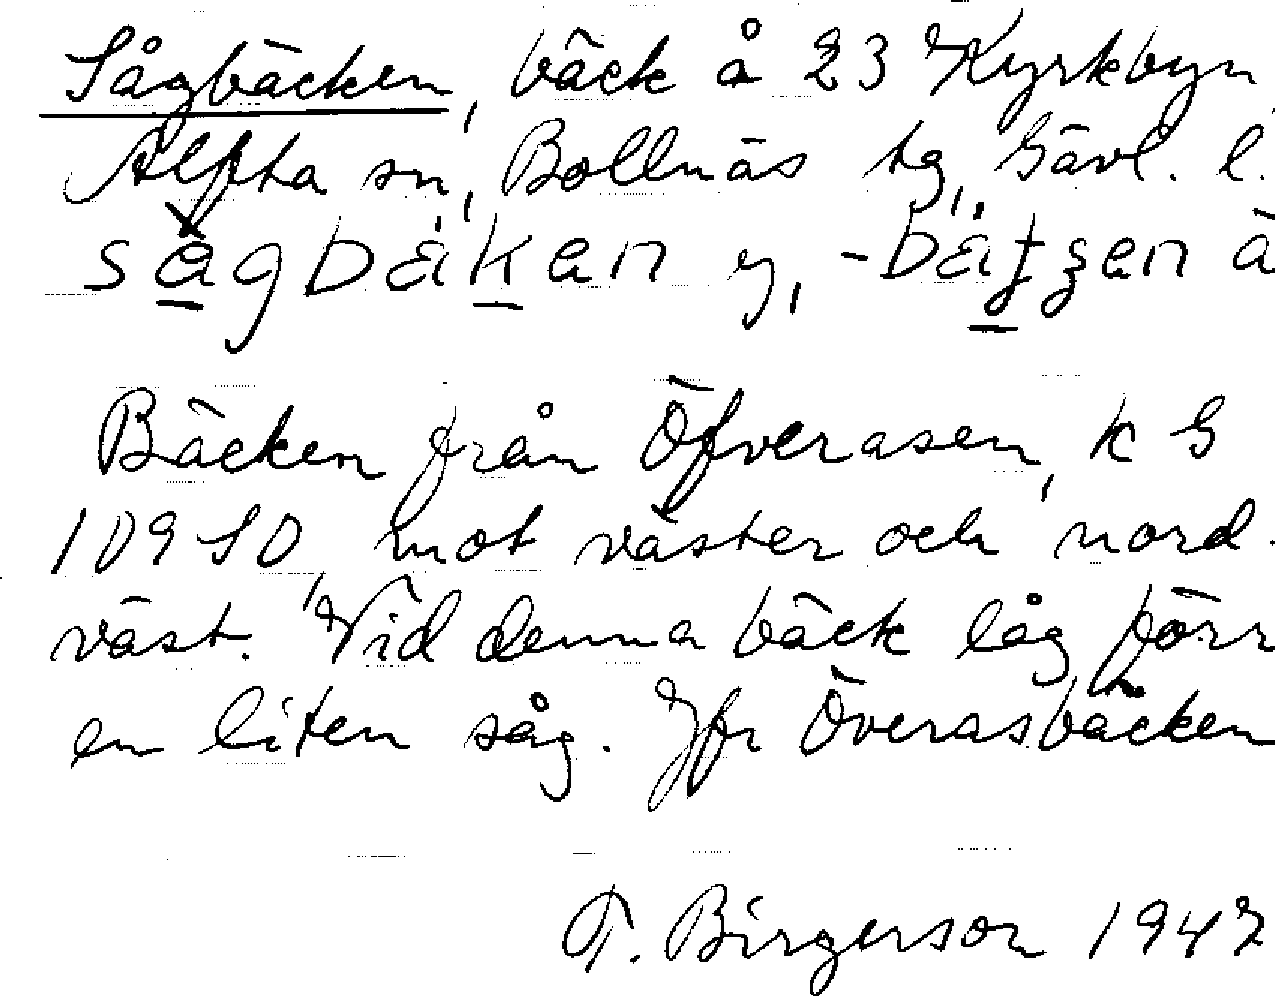 Sågbäcken, bäck å 23 Kyrkbyn,
Alfta sn, Bollnäs tg, Gävl. l.
Bäcken från Öfverasen, k G
109 SO, mot väster och nord-
väst. Vid denna bäck låg förr
en liten såg. Jfr Överasbäcken
T. Birgerson 1947